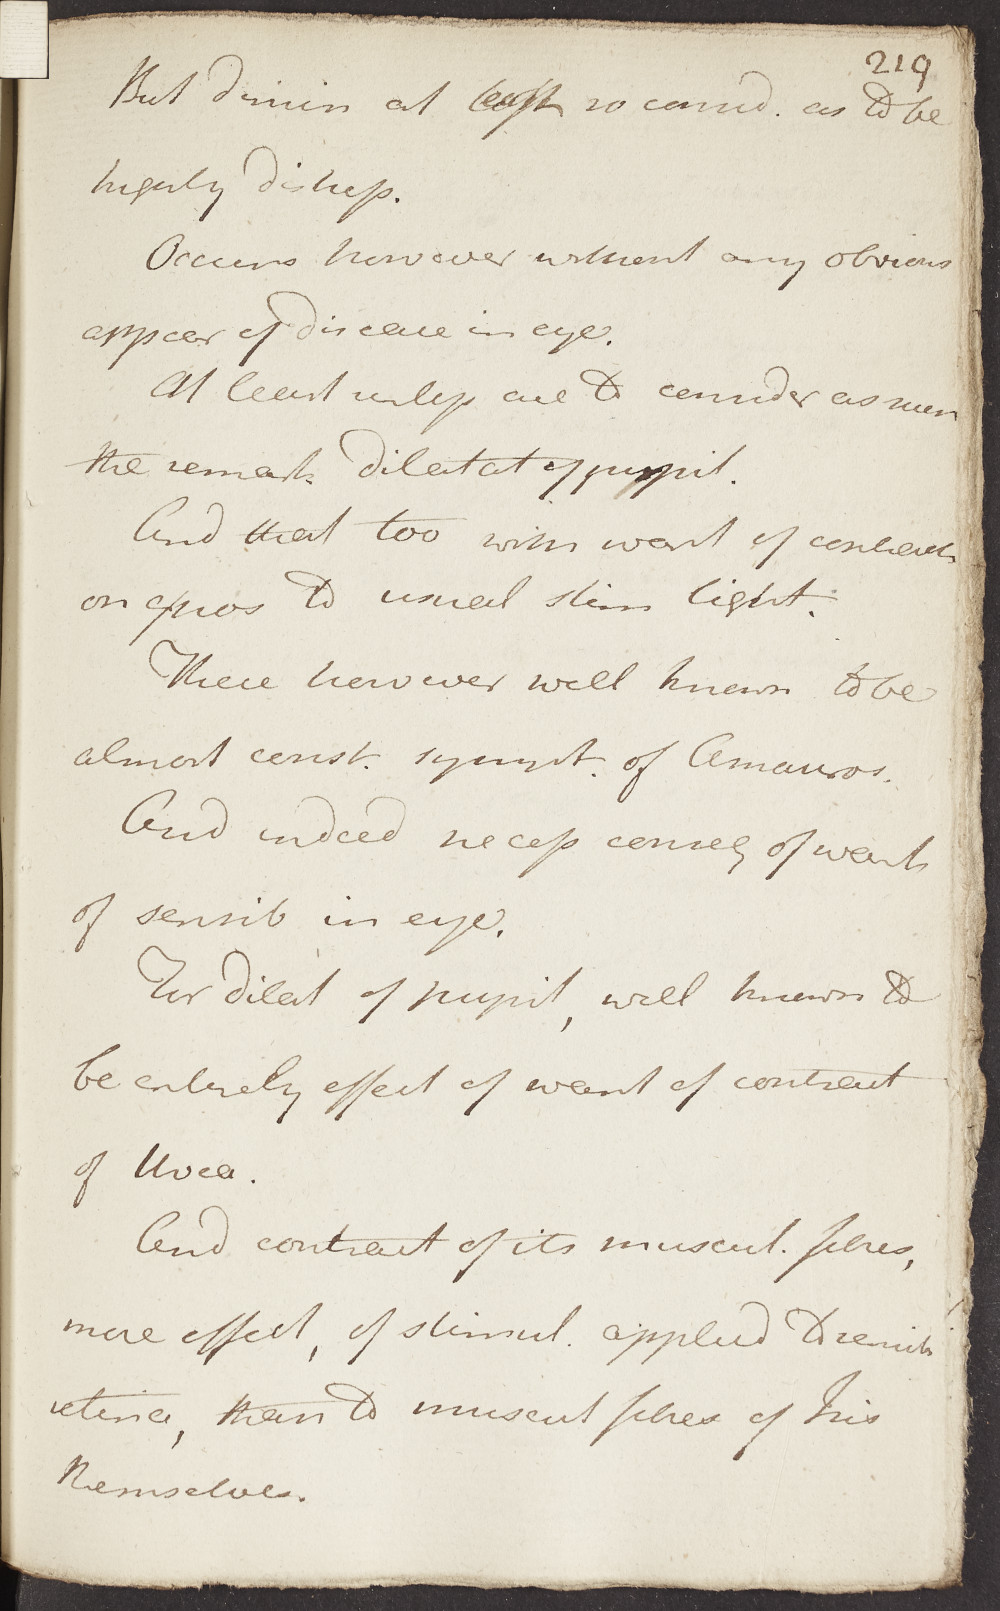 219
But dimin at least so consid. as to be
highly distress.
Occurs however without any obvious
appear of disease in eye.
At least unless are to consider as such
the remark dilatat of pupil.
And that too with want of contract
on expos to usual stim light.
These however well known to be
almost const. sympt. of Amauros.
And indeed necess conseq of want
of sensib in eye.
For dilat of pupil, well known to
be entirely effect of want of contract
of Uvea.
And contract of its muscul. fibres,
more effect, of stimul. applied to sensib
retina, than to muscul fibres of Iris
themselves.